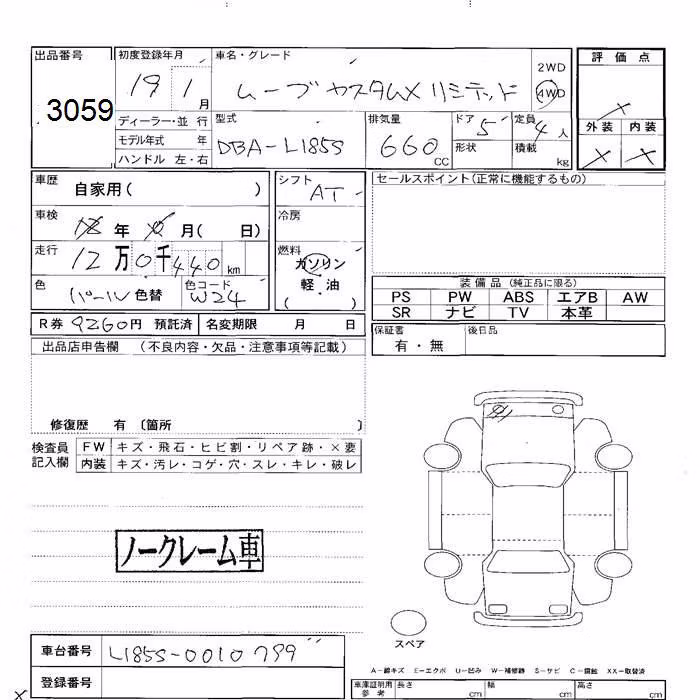 出品番号 初度登録年月 車名・グレード 評価点
3059
19 1 月 ムーブ カスタムX リミテッド 2WD 4WD
ディーラー・並行 型式 排気量 ドア 定員 外装 内装
モデル年式 年 DBA-L185S 660 CC 5 4人
ハンドル 左・右 形状 積載 kg
車歴 自家用( ) シフト AT セールスポイント(正常に機能するもの)
車検 年 月( 日) 冷房
走行 12万0千440km 燃料 ガソリン
軽油
( )
色 パール 色替 色コード W24 装備品 (純正品に限る)
PS PW ABS エアB AW
SR ナビ TV 本革
R券 9260円 預託済 名変期限 月 日 保証書 有・無 後日品
出品店申告欄 (不良内容・欠品・注意事項等記載)
修復歴 有 〔箇所 〕
検査員 FW キズ・飛石・ヒビ割・リペア跡・×要
記入欄 内装 キズ・汚レ・コゲ・穴・スレ・キレ・破レ
ノークレーム車
スペア
車台番号 L185S-0010799
A-線キズ E-エクボ U-凹み W-補修跡 S-サビ C-腐蝕 XX-取替済
登録番号 車庫証明用参考 長さ cm 幅 cm 高さ cm